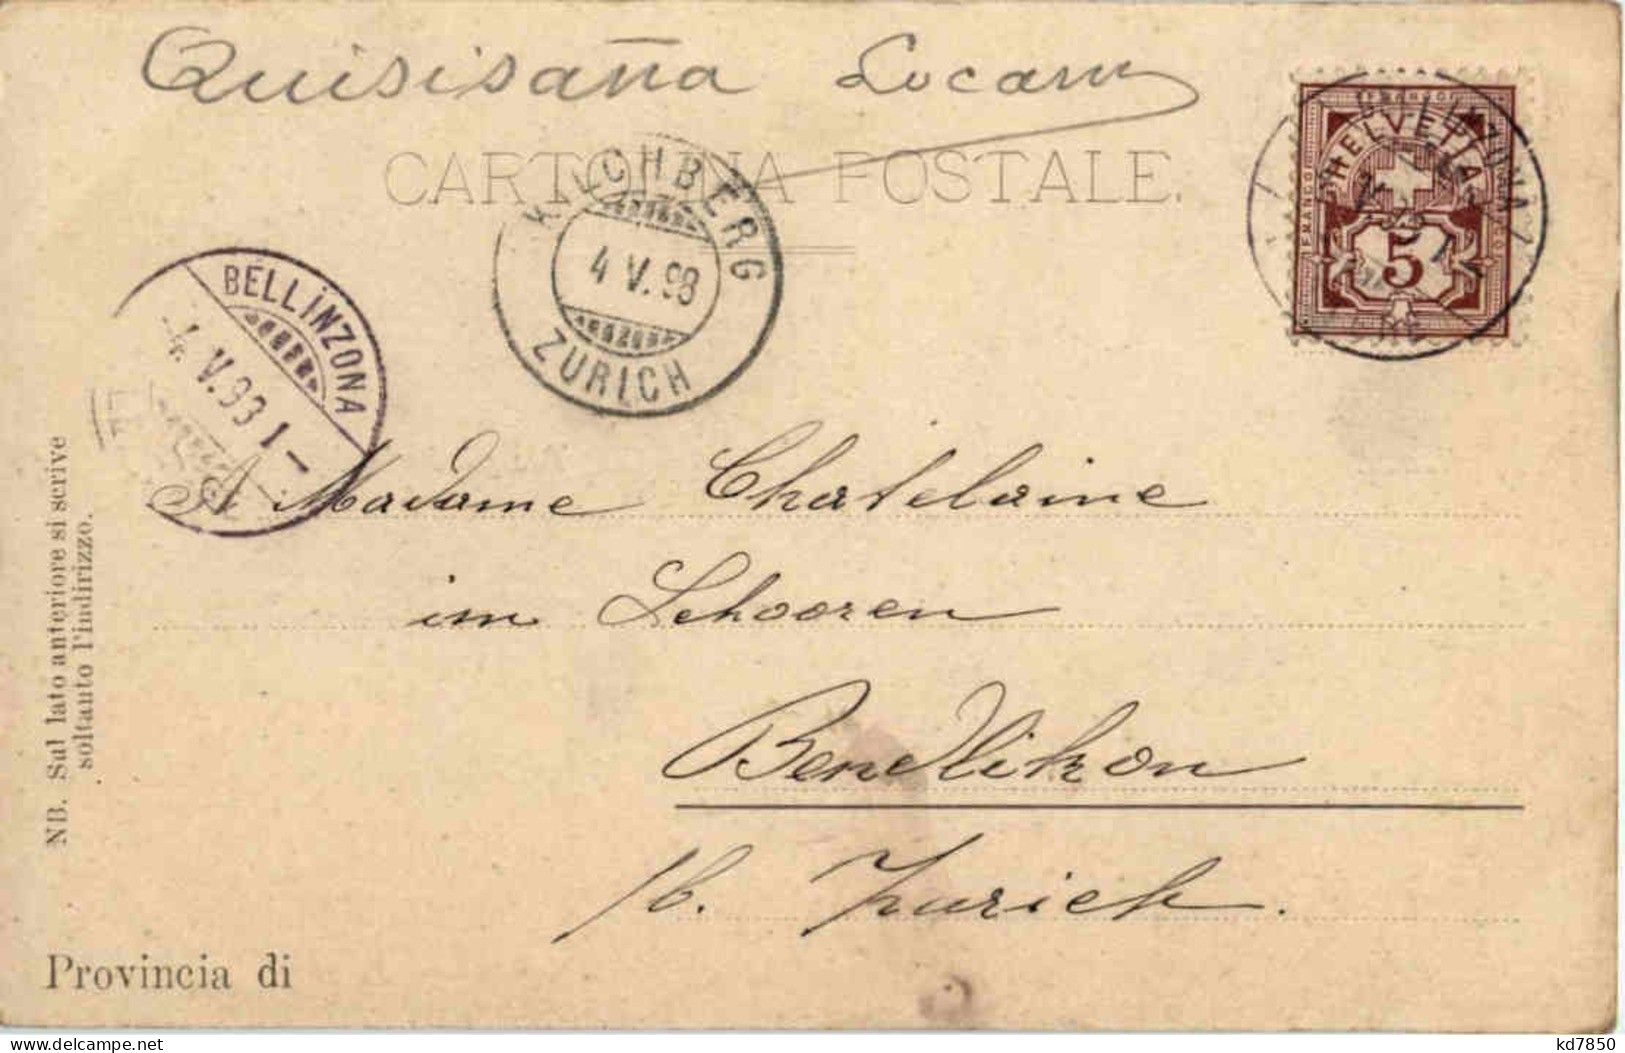 Quisisana Locarn
CARTOLINA POSTALE.
FRANCO
HELVETIA
5
KILCHBERG
4 V. 98
ZÜRICH
BELLINZONA
4. V. 93 I -
A Madame Chatelaine
im Schooren
Bendlikon
/b. Zurich.
NB. Sul lato anteriore si scrive
soltanto l'indirizzo.
Provincia di
www.delcampe.net
kd7850